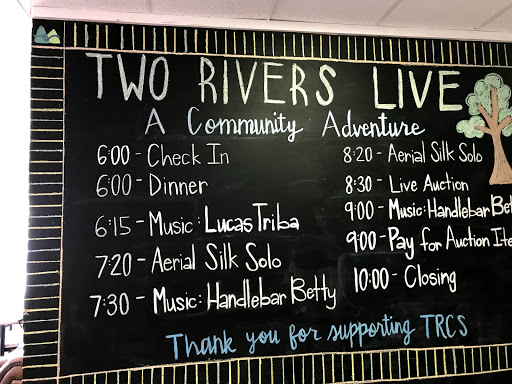 TWO RIVERS LIVE
A Community Adventure
6:00 - Check In
6:00 - Dinner
6:15 - Music: Lucas Triba
7:20 - Aerial Silk Solo
7:30 - Music: Handlebar Betty
8:20 - Aerial Silk Solo
8:30 - Live Auction
9:00 - Music: Handlebar Bet
9:00 - Pay for Auction Ite
10:00 - Closing
Thank you for supporting TRCS